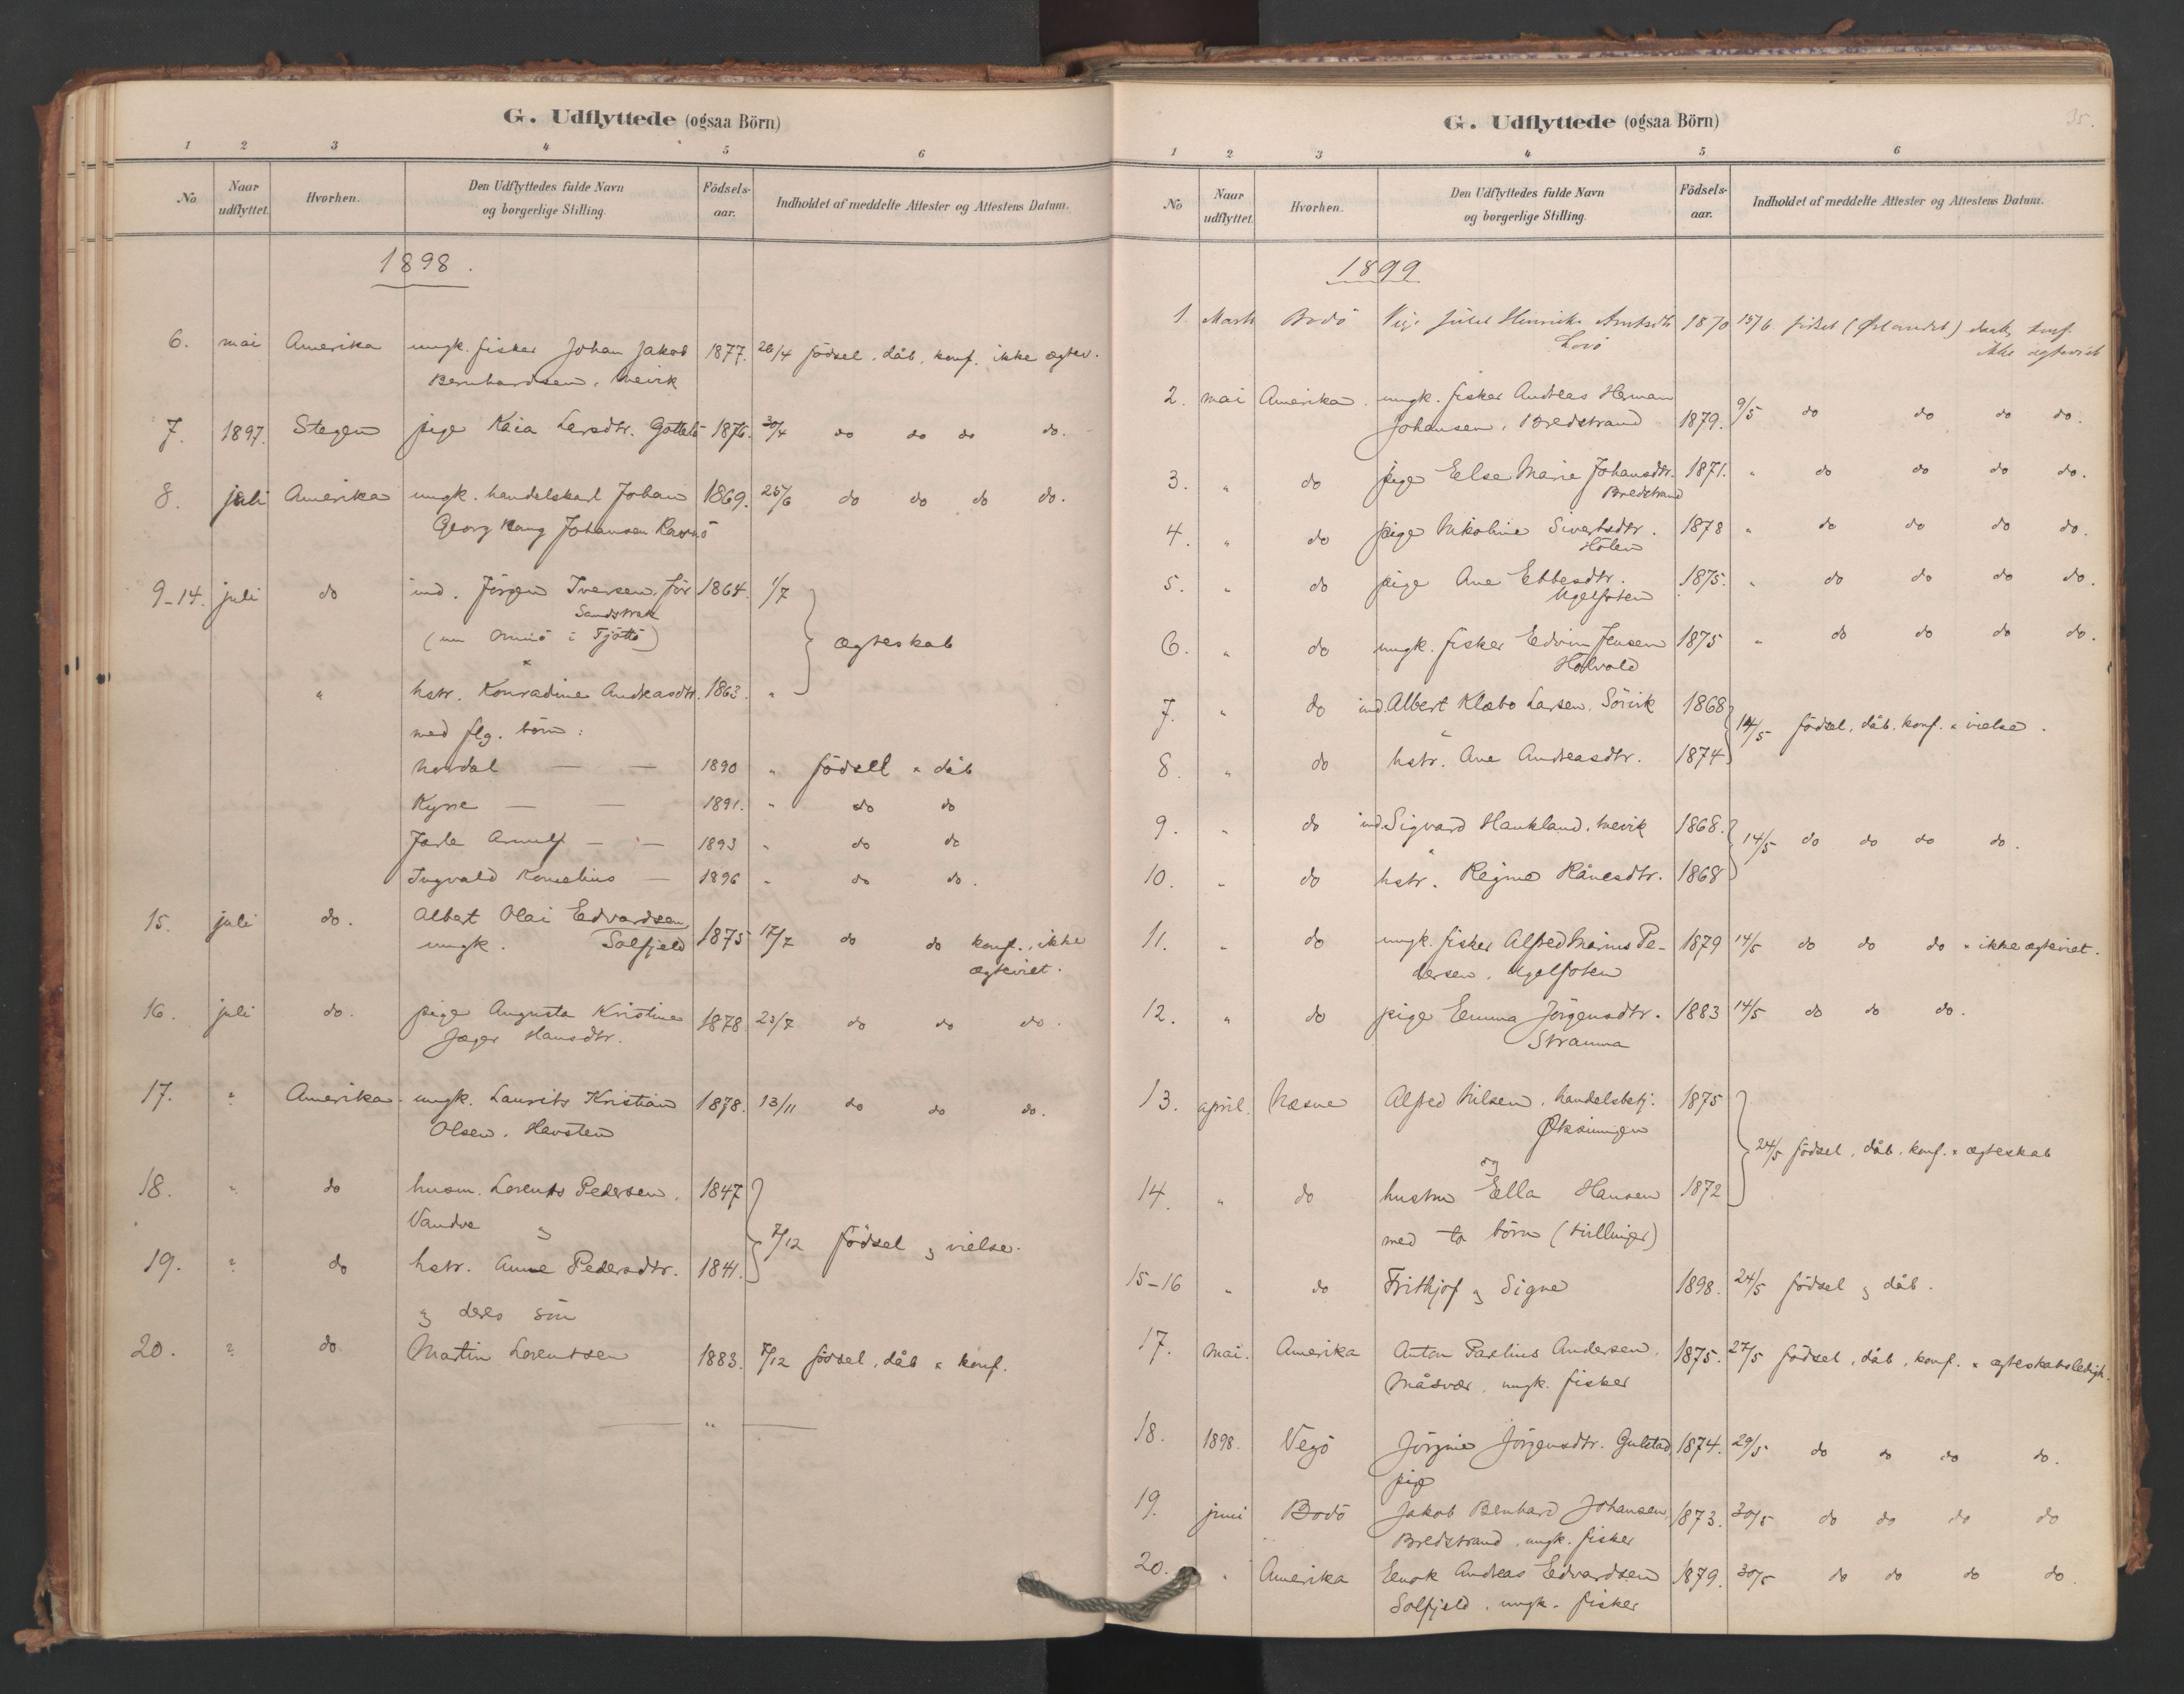 G. Udflyttede (ogsaa Börn)
1 2 3 4 5 6
No Naar udflyttet. Hvorhen. Den Udflyttedes fulde Navn og borgerlige Stilling. Födsels-aar. Indholdet af meddelte Attester og Attestens Datum.
1898.
6. mai Amerika ungk. fisker Johan Jakob 1877. 26/4 födsel, dåb, konf. ikke ægtev.
Bernhardsen,
7. 1897. Stegen pige Kaia Larsdtr. 1876. 30/4 do do do do.
8. juli Amerika ungk. handelskarl Johan 1869. 25/6 do do do do.
Georg Johansen
9-14. juli do ind. Jörgen Iversen, för 1864. 1/7
Sandstrak
(nu i Tjöttö) ægteskab
" hstr. Konradine Andreasdtr. 1863. "
med flg. börn:
Nordal — — 1890 " födsel & dåb
Kyrre — — 1891. " do do
Jarle Arnulf — — 1893 " do do
Ingvald Kornelius — 1896 " do do.
15. juli do. Albert Olai Edvardsen 1875 17/7 do do konf., ikke
ungk. Solfjeld ægteviet.
16. juli do. pige Augusta Kristine 1878. 23/7 do do do.
Jæger Hansdtr.
17. ? Amerika ungk. Laurits Kristian 1878. 13/11 do do do.
Olsen, Havsten
18. ? do husm. Lorents Pedersen, 1847
Vandve & 7/12 födsel & vielse.
19. ? do hstr. Anne Pedersdtr. 1841.
& deres sön
20. ? do Martin Lorentsen 1883. 7/12 födsel, dåb & konf.
— " —
G. Udflyttede (ogsaa Börn) 35.
1 2 3 4 5 6
No Naar udflyttet. Hvorhen. Den Udflyttedes fulde Navn og borgerlige Stilling. Födsels-aar. Indholdet af meddelte Attester og Attestens Datum.
1899
1. Marts Bodö Pige 1870 15/6 födsel
ikke ægteviet
2. mai Amerika ungk. fisker Andreas Herman
Johansen, Bredstrand 1879. 9/5 do do do do.
3. " do pige Else Marie Johansdtr. 1871. " do do do do.
Bredstrand
4. " do pige Nikoline Sivertsdtr. 1878 " do do do do.
Holen
5. " do pige Ane Ebbesdtr. 1875. " do do do do.
6. " do ungk. fisker Edvin Jensen 1875 " do do do do.
7. " do ind. Albert Klæbo Larsen, Sörvik 1868
& 14/5 födsel, dåb, konf. & vielse.
8. " do hstr. Ane Andreasdtr. 1874
9. " do ind. Sigvard Haukland, 1868.
14/5 do do do do.
10. " do hstr. Regine Rånesdtr. 1868
11. " do ungk. fisker Alfred Marius Pe- 1879 14/5 do do do & ikke ægteviet.
dersen,
12. " do pige Emma Jörgensdtr. 1883 14/5 do do do.
Stranna
13. april. Næsne Alfred Nilsen, handelsbetj. 1875
Øksningen
& 24/5 födsel, dåb, konf. & ægteskab
14. " do hustru Ella Hansen 1872
med to börn (tvillinger)
15-16 " do Frithjof & Signe 1898. 24/5 födsel & dåb.
17. mai. Amerika Anton Paelius Andersen, 1875. 27/5 födsel, dåb, konf. & ægteskabsledigh.
Måsvær, ungk. fisker
18. 1898. Vegö Jörgine Jörgensdtr. Gulstad 1874. 29/5 do do do do.
pige
19. juni Bodö Jakob Benhard Johansen, 1873. 30/5 do do do do
Bredstrand, ungk. fisker
20. " Amerika Enok Andreas Edvardsen 1879. 30/5 do do do do.
Solfjeld, ungk. fisker